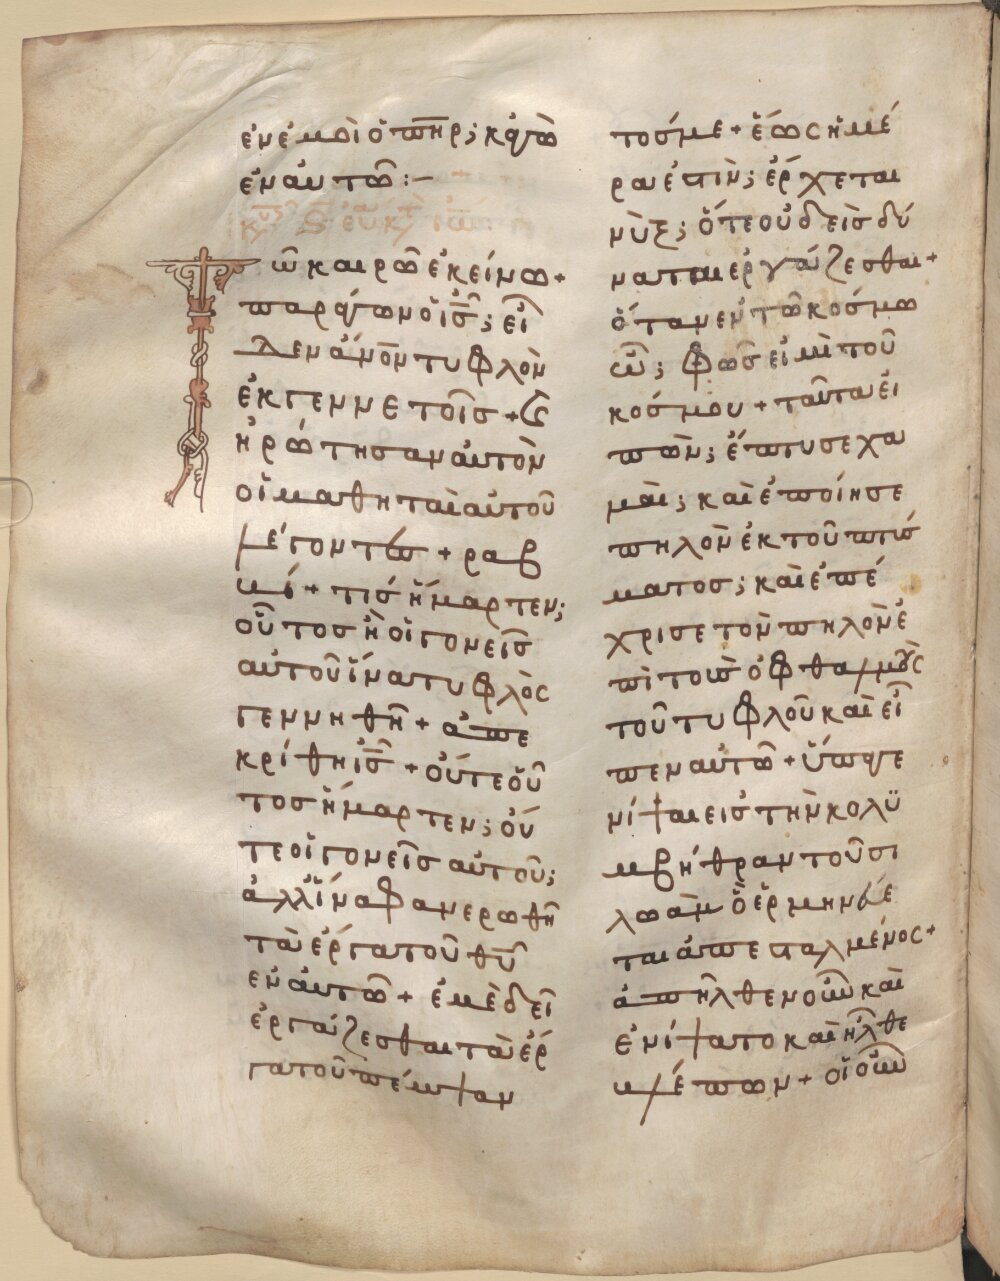 ἐν ἐμοὶ ὁ π̅η̅ρ; κἀγὼ
ἐν αὐτῶ :–
Τῶ καιρῶ ἐκείνω +
παράγων ὁ ι̅ς̅; εἶ
δεν ἄνο̅ν τυφλὸν
ἐκ γεννετοῖσ + καὶ
ἠρώτησαν αὐτὸν
οἱ μαθηταὶ αὐτοῦ
λέγοντεσ + ραβ
βί + τίσ ἥμαρτεν;
οὗτοσ ἢ οἱ γονεῖσ
αὐτοῦ ἵνα τυφλὸς
γεννηθῆ + ἀπε
κρίθη ι̅ς̅ + οὔτε οὗ
τοσ ἥμαρτεν; οὔ
τε οἱ γονεῖσ αὐτοῦ;
ἀλλ' ἵνα φανερωθῆ
τὰ ἔργα τοῦ θ̅υ̅
ἐν αὐτῶ + ἐμὲ δεῖ
ἐργάζεσθαι τὰ ἔρ
γα τοῦ πέμψαν
τοσ με + ἕως ἡμέ
ρα ἐστὶν; ἔρχεται
νὺξ; ὅτε οὐδεὶσ δύ
ναται εργάζεσθαι +
ὅταν εν τῶ κόσμω
ὦ; φῶσ εἰμὶ τοῦ
κόσμου + ταῦτα εἰ
πὼν; ἔπτυσε χα
μαὶ; καὶ ἐποίησε
πηλὸν ἐκ τοῦ πτύσ
ματοσ; καὶ ἐπέ
χρισε τὸν πηλὸν ἐ
πὶ τοὺσ ὀφθαλμοὺς
τοῦ τυφλοῦ καὶ εἶ
πεν αὐτῶ + ὕπαγε
νίψαι εισ τὴν κολυ
μβήθραν τοῦ σι
λωὰμ ὃ ἑρμηνεύε
ται ἀπεσταλμένος +
ἀπῆλθεν οὖν καὶ
ἐνίψατο καὶ ἦλθε
βλέπων + οἱ οὖν